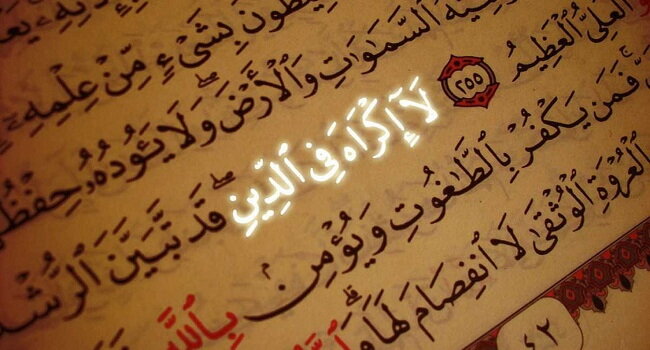 بِشَىْءٍ مِّنْ عِلْمِهِۦٓ
ٱلسَّمَٰوَٰتِ وَٱلْأَرْضَ ۖ وَلَا يَـُٔودُهُۥ
ٱلْعَلِىُّ ٱلْعَظِيمُ ٢٥٥ لَآ إِكْرَاهَ فِى ٱلدِّينِ ۖ قَد تَّبَيَّنَ ٱلرُّشْدُ
فَمَن يَكْفُرْ بِٱلطَّٰغُوتِ وَيُؤْمِنۢ بِٱللَّهِ
ٱلْعُرْوَةِ ٱلْوُثْقَىٰ لَا ٱنفِصَامَ لَهَا ۗ
٤٢